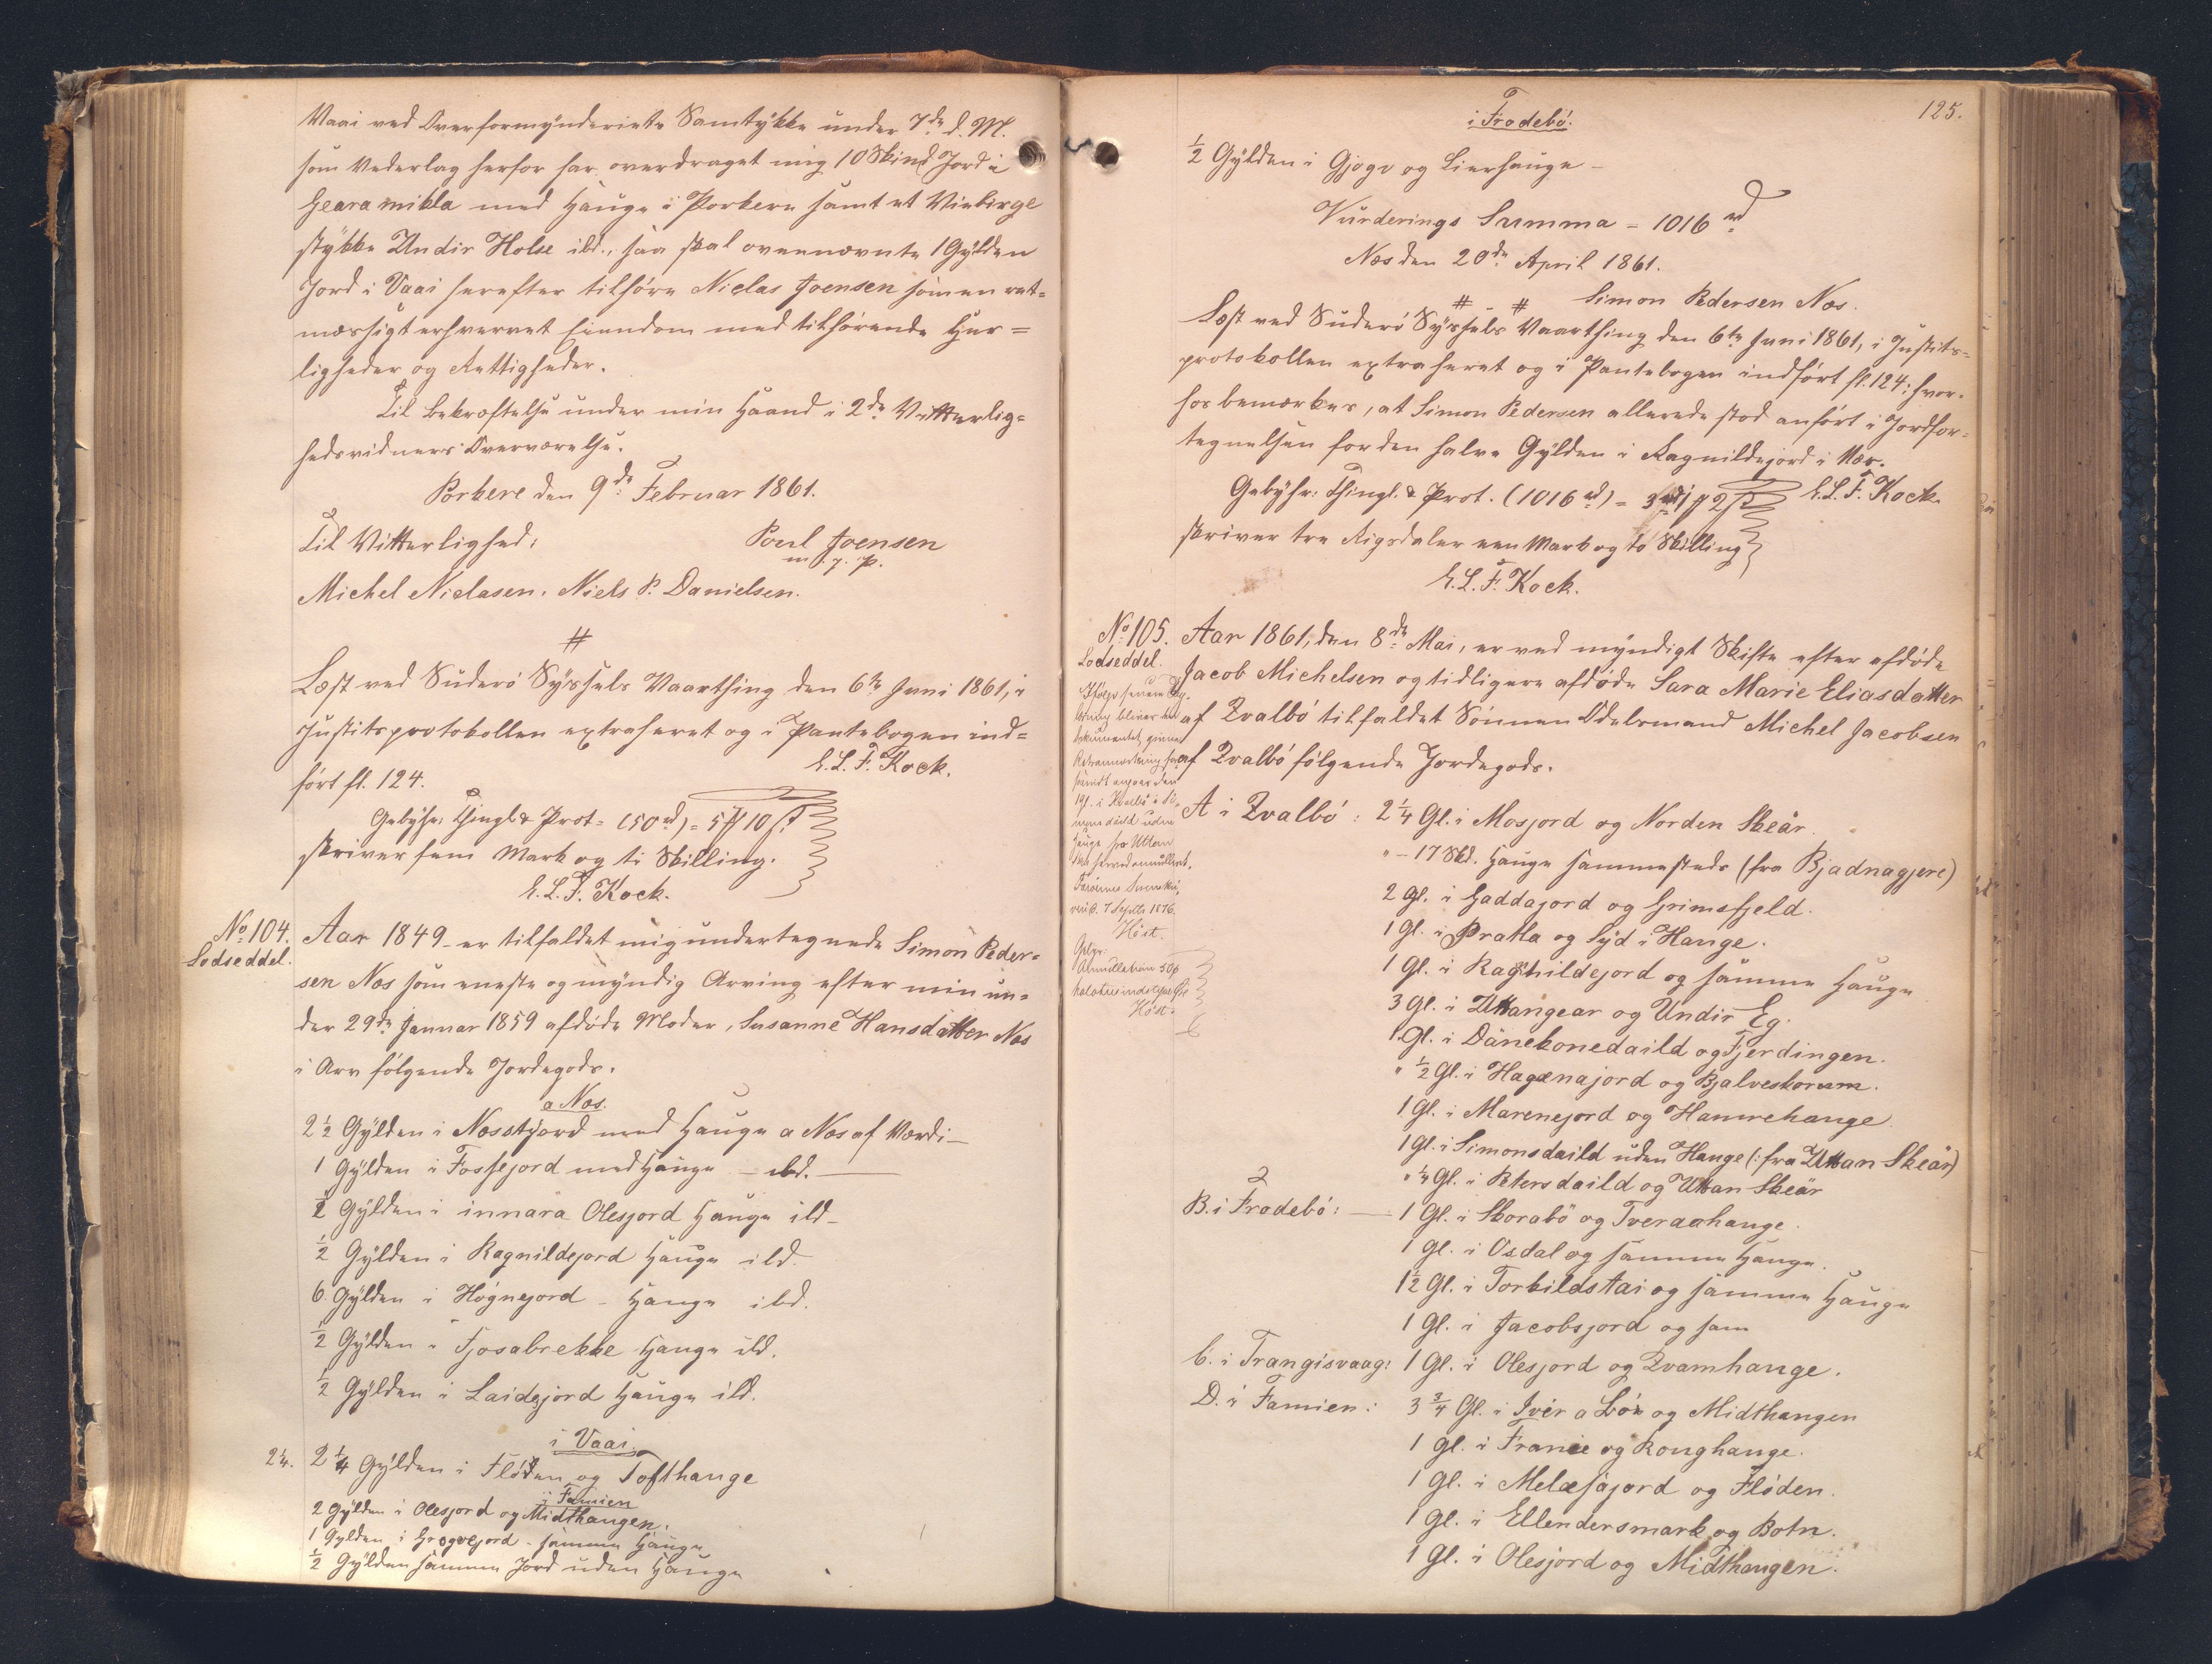 Vaai ved Overformynderiets Samtykke under 7de d. M.
som Vederlag herfor har overdraget mig 10 Skind Jord i
Geara mikla med Hauge i Porkere samt et Viebirge
stykke Undir Holse ibd., saa skal ovennævnte 1 Gylden
Jord i Vaai herefter tilhøre Niclas Joensen som en ret=
mæssigt erhvervet Eiendom med tilhørende Her=
ligheder og Rettigheder.
Til Bekræftelse under min Haand i 2de Vitterlig=
hedsvidners Overværelse.
Porkere den 9de Februar 1861.
Til Vitterlighed: Poul Joensen
m. f. P.
Michel Niclasen. Niels P. Danielsen.
#
Læst ved Suderö Syssels Vaarthing den 6te Juni 1861, i
Justitsprotokollen extraheret og i Pantebogen ind=
ført fl. 124. E. L. F. Kock.
Gebyhr: Thingl. & Prot. (50 rd) = 5 ₰ 10 ß
skriver fem Mark og ti Skilling.
E. L. F. Kock.
No 104. Lodseddel.
Aar 1849 er tilfaldet mig undertegnede Simon Peder=
sen Nos som eneste og myndig Arving efter min un=
der 29de Januar 1859 afdøde Moder, Susanne Hansdatter Nos
i Arv følgende Jordegods.
a Nos.
2 1/2 Gylden i Nosstjord med Hauge a Nos af Værdi —
1 Gylden i Fossejord med Hauge — ibd. —
1/2 Gylden i innara Olesjord Hauge ibd —
1/2 Gylden i Ragnildejord Hauge ibd.
6 Gylden i Högnejord — Hauge ibd.
1/2 Gylden i Fjosabrekke Hauge ibd.
1/2 Gylden i Laidejord Hauge ibd.
i Vaai.
2 1/4. 2 1/4 Gylden i Flöden og Tofthauge
i Famien
2 Gylden i Olesjord og Midthaugen.
1 Gylden i Grogvejord — samme Hauge
1/2 Gylden samme Jord uden Hauge
125.
i Frodebö.
1/2 Gylden i Gjogv og Lierhauge —
Vurderings Summa = 1016 rd
Nos den 20de April 1861.
Simon Pedersen Nos.
# - #
Læst ved Suderö Syssels Vaarthing den 6te Juni 1861, i Justits=
protokollen extraheret og i Pantebogen indført fl. 124; hvor=
hos bemærkes, at Simon Pedersen allerede stod anført i Jordfor=
tegnelsen for den halve Gylden i Ragnildejord i Næs.
Gebyhr: Thingl. & Prot. (1016 rd) = 3 rd 1 ₰ 2 ß E. L. F. Kock.
skriver tre Rigsdaler een Mark og to Skilling
E. L. F. Kock.
No 105. Lodseddel.
Aar 1861, den 8de Mai, er ved myndigt Skifte efter afdøde
Jacob Michelsen og tidligere afdøde Sara Marie Eliasdatter
af Qvalbö tilfaldet Sønnen Odelsmand Michel Jacobsen
af Qvalbö følgende Jordegods.
7 Septbr 1876.
Höst.
Gebyr:
Annullation 50
Höst.
A i Qvalbö: 2 1/4 Gl. i Mosjord og Norden Skeär.
" — 17 Skd. Hauge sammesteds (fra Bjadnagjere)
2 Gl. i Gaddajord og Grimsfjeld.
1 Gl. i Pratla og Syd i Hauge.
1 Gl. i Ragnhildejord og samme Hauge
3 Gl. i Uttangear og Undir Eg.
1 Gl. i Dänekonedaild og Fjerdingen.
" 1/2 Gl. i Hagænajord og Bjalveskorum.
1 Gl. i Marenejord og Hamrehauge
1 Gl. i Simonsdaild uden Hauge (: fra Uttan Skeär)
" 1/4 Gl. i Petersdaild og Uttan Skeär
B. i Frodebö: — 1 Gl. i Skorabö og Tveraahauge.
1 Gl. i Osdal og samme Hauge.
1 1/2 Gl. i Torkildstai og samme Hauge
1 Gl. i Jacobsjord og sam
C. i Trangisvaag: 1 Gl. i Olesjord og Qvamhauge.
D. i Famien: 3 3/4 Gl. i Ivir a Lön og Midthaugen
1 Gl. i Franie og Roughauge.
1 Gl. i Melæsajord og Flöden.
1 Gl. i Ellendersmark og Botn.
1 Gl. i Olesjord og Midthaugen.